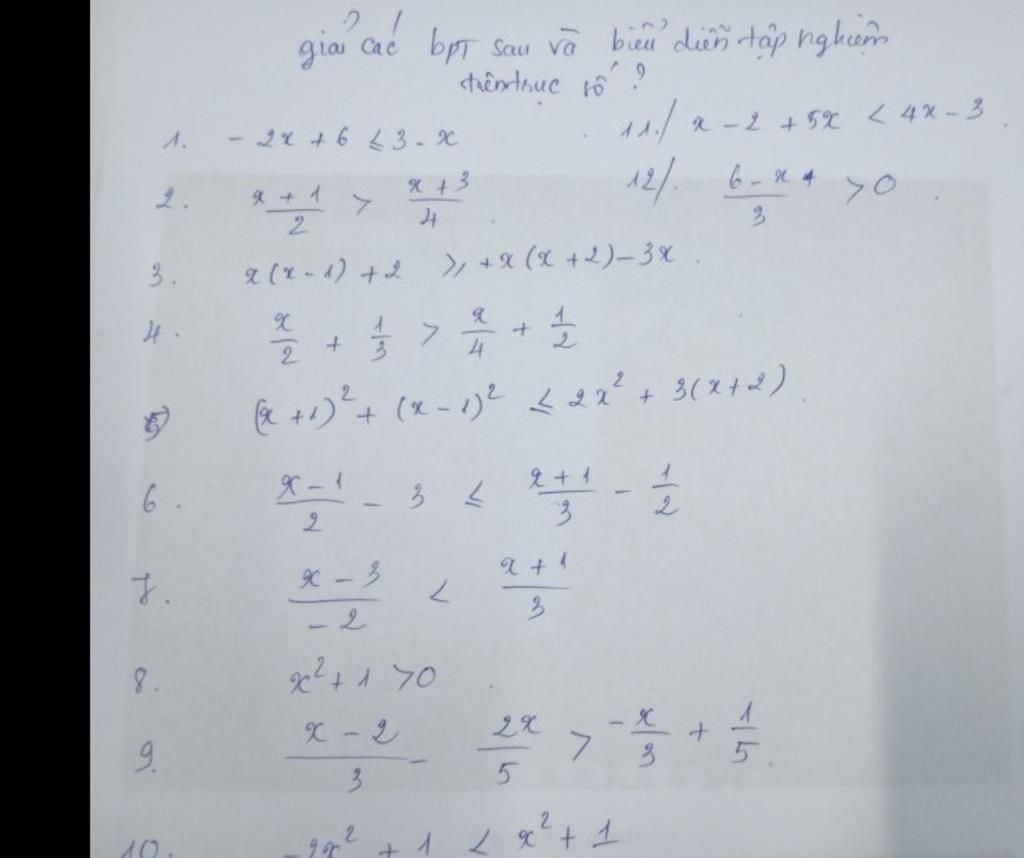 giải các bpt sau và biểu diễn tập nghiệm
trên trục số ?
1. - 2x + 6 ≤ 3 - x
11./ x - 2 + 5x < 4x - 3.
2. (x + 1)/2 > (x + 3)/4.
12/. (6 - x)/3 > 0.
3. x(x - 1) + 2 ≥ + x(x + 2) - 3x.
4. x/2 + 1/3 > x/4 + 1/2
5) (x + 1)² + (x - 1)² ≤ 2x² + 3(x + 2).
6. (x - 1)/2 - 3 ≤ (x + 1)/3 - 1/2
7. (x - 3)/-2 < (x + 1)/3
8. x² + 1 > 0.
9. (x - 2)/3 - 2x/5 > -x/3 + 1/5.
10. -2x² + 1 < x² + 1